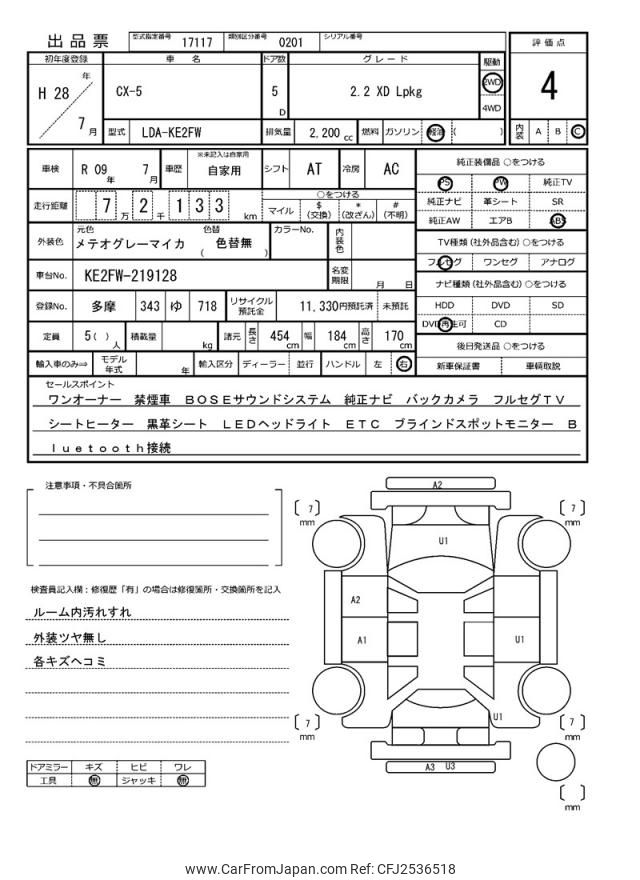 出品票
型式指定番号 17117 類別区分番号 0201 シリアル番号
評価点
4
内装 A B C
初年度登録 車名 ドア数 グレード 駆動
H 28 年 7 月 CX-5 5 D 2.2 XD Lpkg 2WD 4WD
型式 LDA-KE2FW 排気量 2,200 cc 燃料 ガソリン 軽油 ( )
車検 R 09 年 7 月 車歴 ※未記入は自家用 自家用 シフト AT 冷房 AC
走行距離 7 万 2 千 1 3 3 km
○をつける
マイル $ (交換) * (改ざん) # (不明)
外装色 元色 メテオグレーマイカ 色替 ( 色替無 ) カラーNo. 内装色
車台No. KE2FW-219128 名変期限 月 日
登録No. 多摩 343 ゆ 718 リサイクル預託金 11,330円預託済 未預託
定員 5( ) 人 積載量 kg 諸元 長さ 454 cm 幅 184 cm 高さ 170 cm
輸入車のみ⇒ モデル年式 年 輸入区分 ディーラー 並行 ハンドル 左 右
純正装備品 ○をつける
PS PW 純正TV
純正ナビ 革シート SR
純正AW エアB ABS
TV種類(社外品含む)○をつける
フルセグ ワンセグ アナログ
ナビ種類(社外品含む)○をつける
HDD DVD SD
DVD再生可 CD
後日発送品 ○をつける
新車保証書 車輌取説
セールスポイント
ワンオーナー 禁煙車 BOSEサウンドシステム 純正ナビ バックカメラ フルセグTV
シートヒーター 黒革シート LEDヘッドライト ETC ブラインドスポットモニター B
luetooth接続
注意事項・不具合箇所
検査員記入欄：修復歴「有」の場合は修復箇所・交換箇所を記入
ルーム内汚れすれ
外装ツヤ無し
各キズヘコミ
ドアミラー キズ ヒビ ワレ
工具 無 ジャッキ 無
A2
[ 7 ] mm
[ 7 ] mm
U1
A2
A1
U1
U1
[ 7 ] mm
[ 7 ] mm
A3 U3
[ ] mm
www.CarFromJapan.com Ref: CFJ2536518